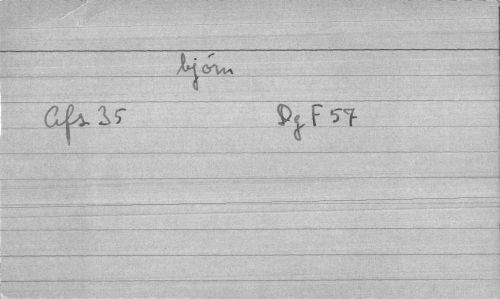 bjórn
Afs 35 Dg F 57